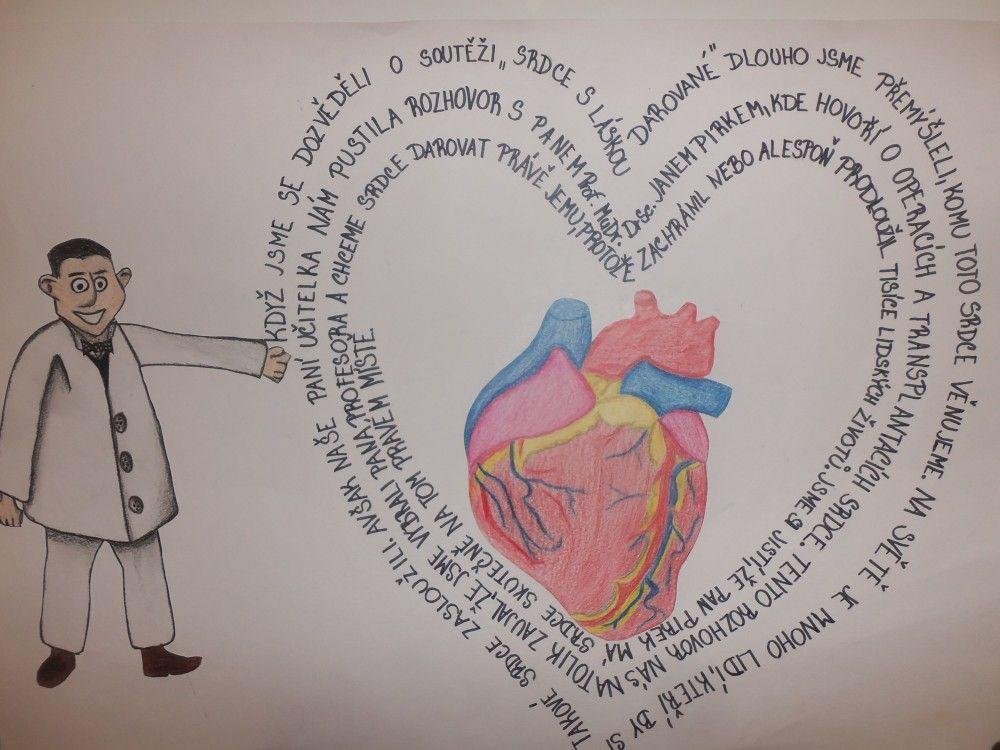 KDYŽ JSME SE DOZVĚDĚLI O SOUTĚŽI „SRDCE S LÁSKOU DAROVANÉ" DLOUHO JSME PŘEMÝŠLELI, KOMU TOTO SRDCE VĚNUJEME. NA SVĚTĚ JE MNOHO LIDÍ, KTEŘÍ BY SI
TAKOVÉ SRDCE ZASLOUŽILI. AVŠAK NAŠE PANÍ UČITELKA NÁM PUSTILA ROZHOVOR S PANEM Prof. MuDr. DrSc. JANEM PIRKEM, KDE HOVOŘÍ O OPERACÍCH A TRANSPLANTACÍCH SRDCE. TENTO ROZHOVOR NÁS NA
TOLIK ZAUJAL, ŽE JSME VYBRALI PANA PROFESORA A CHCEME SRDCE DAROVAT PRÁVĚ JEMU, PROTOŽE ZACHRÁNIL NEBO ALESPOŇ PRODLOUŽIL TISÍCE LIDSKÝCH ŽIVOTŮ. JSME SI JISTI, ŽE PAN PIREK MÁ
SRDCE SKUTEČNĚ NA TOM PRAVÉM MÍSTĚ.